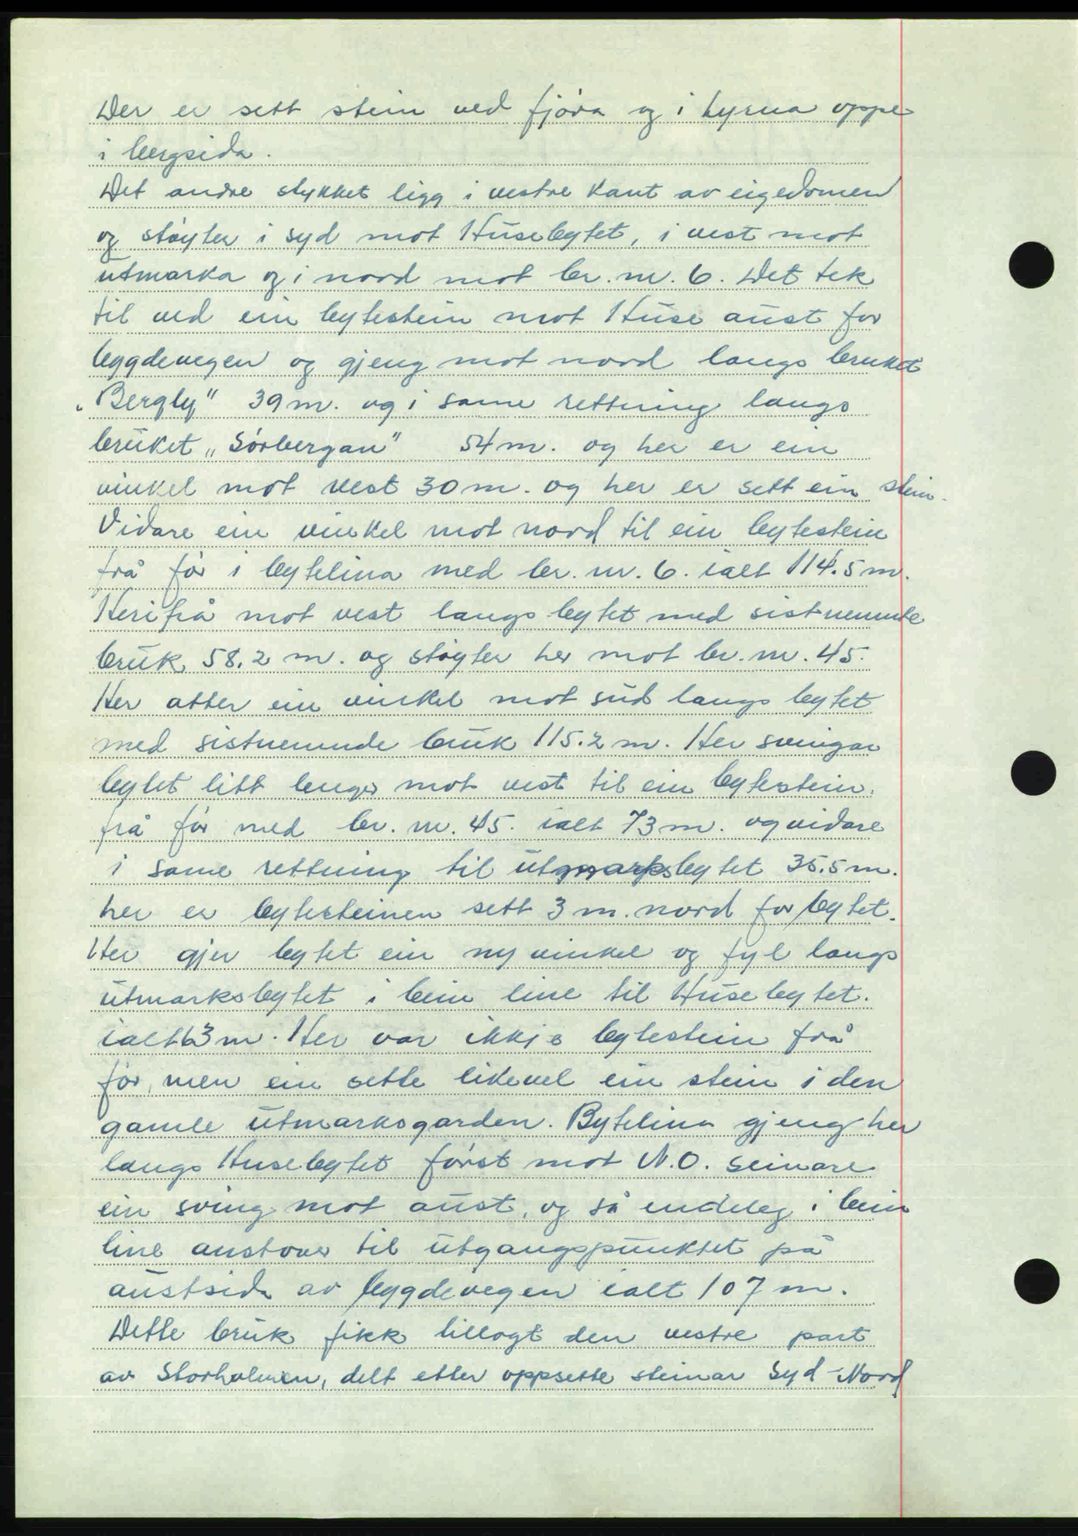 Der er sett stein ved fjöra og i hyrna oppe
i bergsida.
Det andre stykket ligg i vestre kant av eigedomen
og støyter i syd mot Husebytet, i vest mot
utmarka og i nord mot br. nr. 6. Det tek
til ved ein bytestein mot Huse aust for
bygdevegen og gjeng mot nord langs bruket
„Bergly" 39 m. og i same rettning langs
bruket „Sörbergan" 54 m. og her er ein
vinkel mot vest 30 m. og her er sett ein stein.
Vidare ein vinkel mot nord til ein bytestein
frå för i bytelina med br. nr. 6. ialt 114.5 m.
Herifrå mot vest langs bytet med sistnemnde
bruk 58.2 m. og støyter her mot br. nr. 45.
Her atter ein vinkel mot sud langs bytet
med sistnemnde bruk 115.2 m. Her svingar
bytet litt lenger mot vest til ein bytestein.
frå för med br. nr. 45. ialt 73 m. og vidare
i same rettning til utmarksbytet 35.5 m.
her er bytesteinen sett 3 m. nord for bytet.
Her gjer bytet ein ny vinkel og fyl langs
utmarksbytet i bein line til Husebytet.
ialt 63 m. Her var ikkje bytestein frå
för, men ein sette likevel ein stein i den
gamle utmarksgarden. Bytelina gjeng her
langs Husebytet först mot N.O. seinare
ein sving mot aust, og så endeleg i bein
line austover til utgangspunktet på
austsida av bygdevegen ialt 107 m.
Dette bruk fikk tillagt den vestre part
av Storholmen, delt etter oppsette steinar Syd-Nord